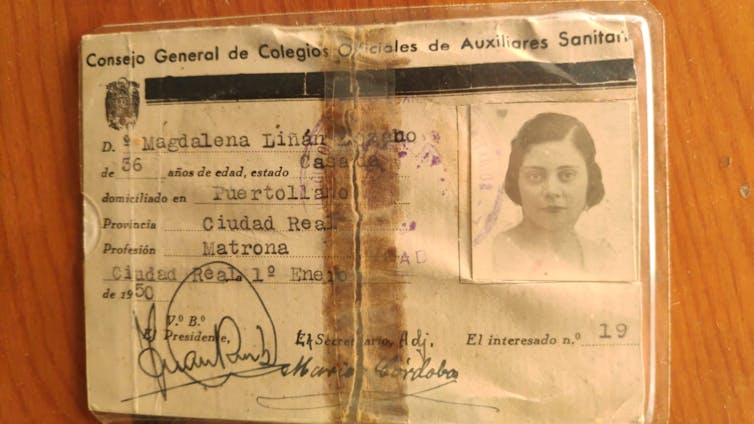 Consejo General de Colegios Oficiales de Auxiliares Sanitari
D.ª Magdalena Liñán Lozano
de 36 años de edad, estado Casada
domiciliado en Puertollano
Provincia Ciudad Real
Profesión Matrona
Ciudad Real a 1º Enero
de 1950
V.º B.º
El Presidente, El Secretario, Adj. El interesado n.º 19
María Córdoba
AD